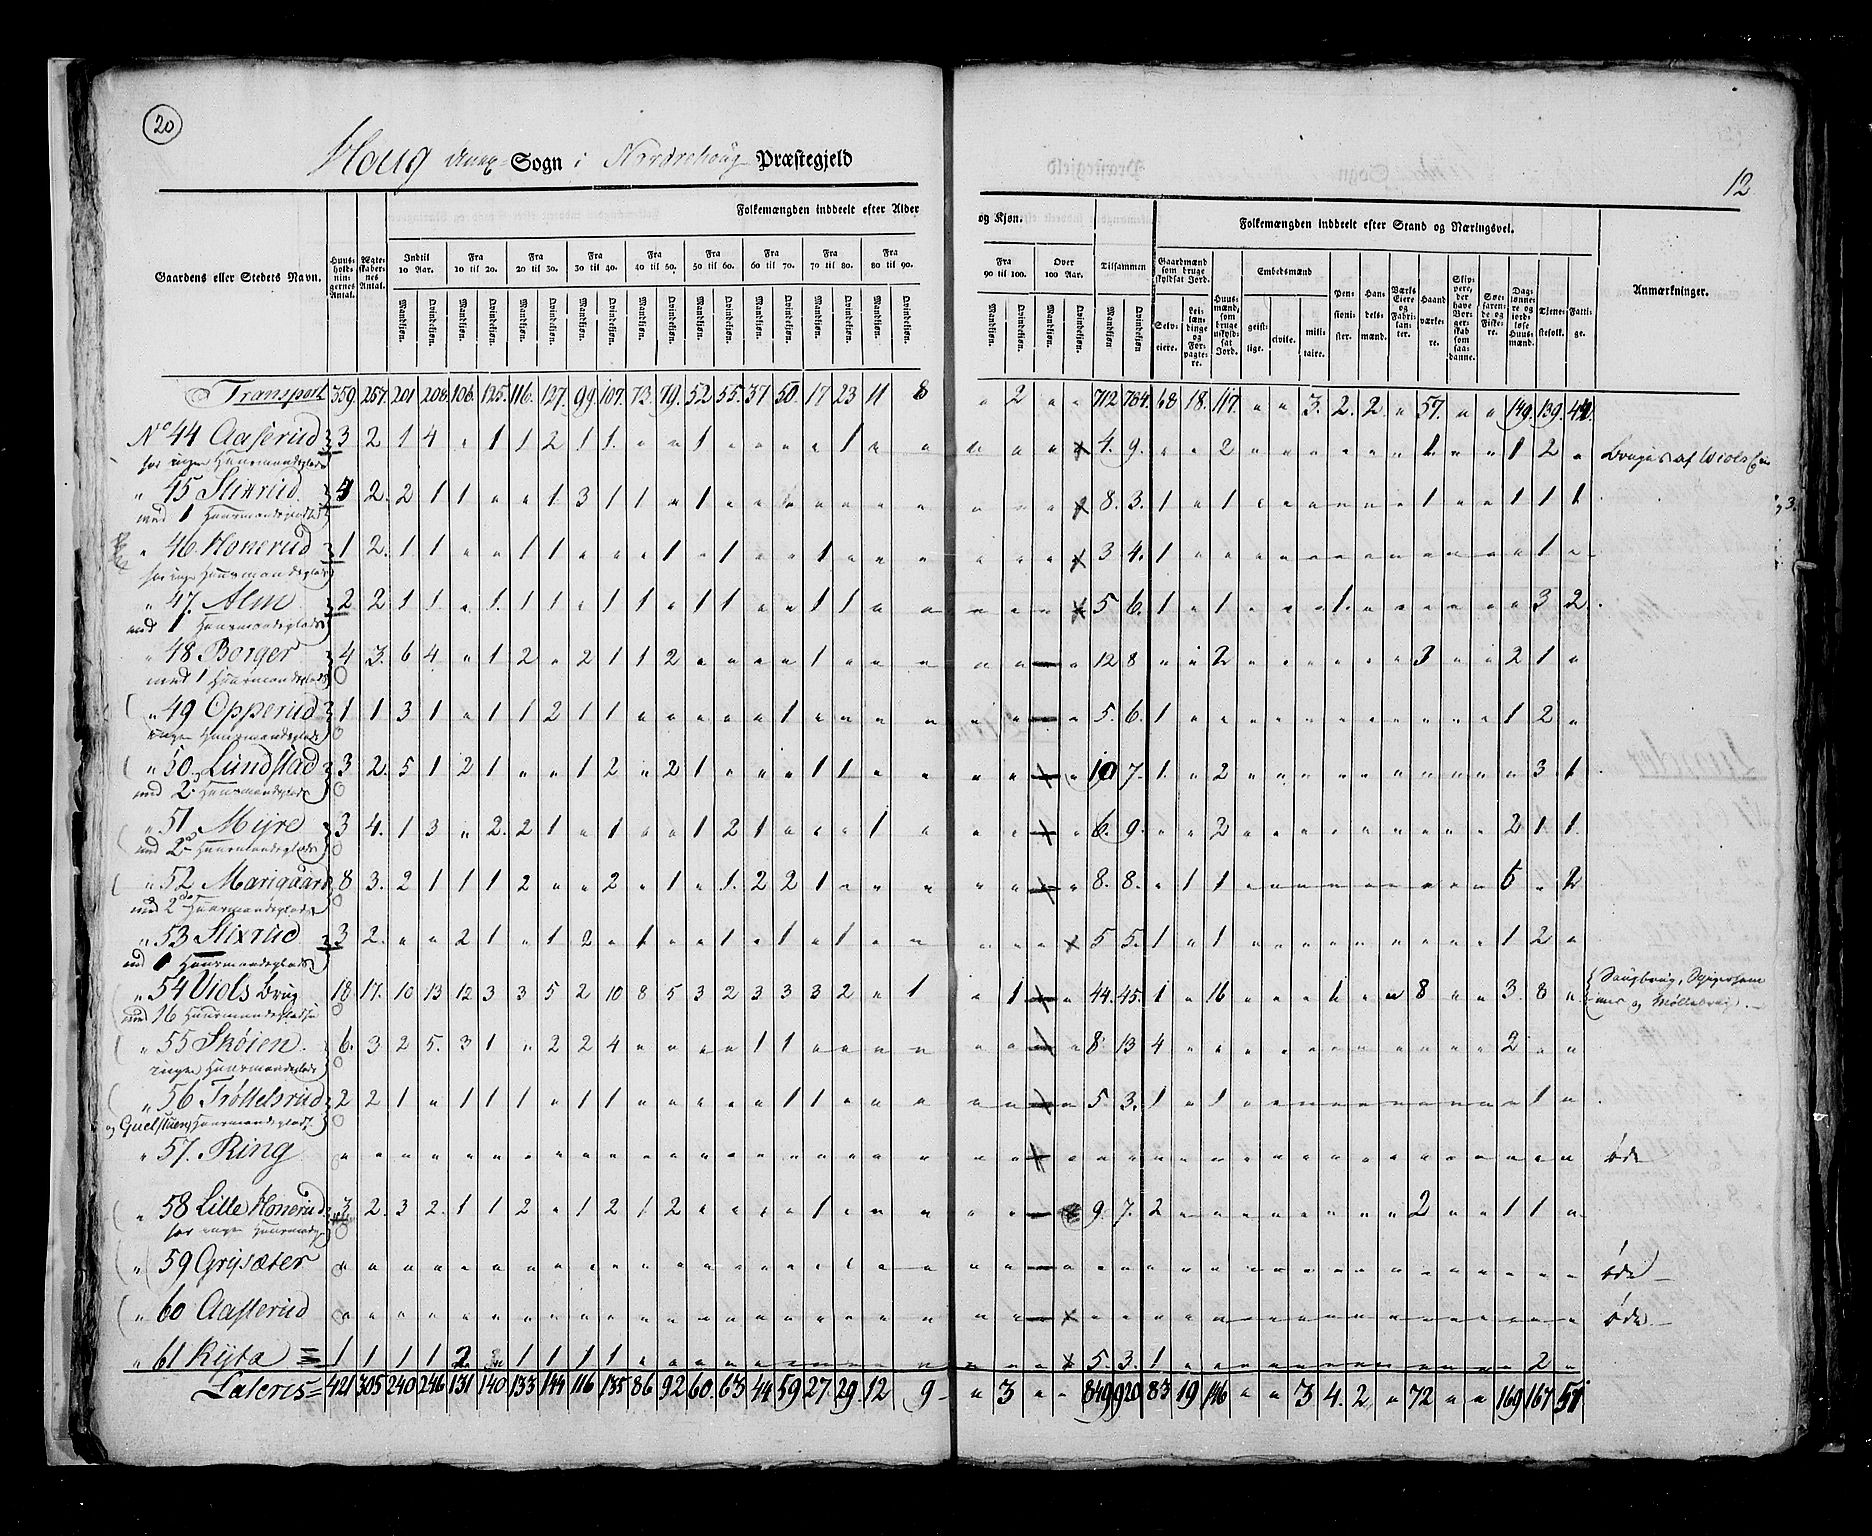 20
Houg Annex Sogn i Nordrehoug Præstegjeld
12
Folkemængden inddeelt efter Alder og Kjøn.
Folkemængden inddeelt efter Stand og Næringsvei.
Gaardens eller Stedets Navn.
Huus-holdnin-gernes Antal.
Ægte-skaber-nes Antal.
Indtil 10 Aar.
Fra 10 til 20.
Fra 20 til 30.
Fra 30 til 40.
Fra 40 til 50.
Fra 50 til 60.
Fra 60 til 70.
Fra 70 til 80.
Fra 80 til 90.
Fra 90 til 100.
Over 100 Aar.
Tilsammen
Mandkjøn. Qvindekjøn.
Gaardmænd som bruge skyldsat Jord.
Selveiere.
Leilændinge og Forpagtere.
Huusmænd, som bruge uskyldsat Jord.
Embedsmænd
geistlige. civile. militaire.
Pensionister.
Handelsmænd.
Værks Eiere og Fabrikanter.
Haandværkere.
Skippere, der have Borgerskab som saadanne.
Søefarende og Fiskere.
Daglønnere og jordløse Huusmænd.
Tjenestefolk.
Fattige.
Anmærkninger.
Transport 359. 257. 201 208 106. 125. 116. 127. 99. 107. 73. 79. 52 55. 37 50. 17 23 11 8 „ 2 „ „ 712 784. 68 18. 117. „ „ 3. 2. 2 „ 57. „ „ 149. 139. 42.
No 44 Aaserud 3 2 1 4 „ 1 1 2 1 1 „ „ 1 „ „ „ „ 1 „ „ 4. 9. „ „ 2 1 „ „ 1 2 „ Bruges af Viols
for ingen Huusmandsplads
„ 45 Stixrud 4 2. 2 1 1 „ „ 1 3 1 1 „ 1 8. 3. 1 „ 1 1 „ „ 1 1 1
med 1 Huusmandsplads
„ 46 Honerud 1 2. 1 1 „ „ 1 1 „ „ „ 1 „ 1 „ „ 1 3 4. 1 1 „
for ingen Huusmandsplads
„ 47. Alm 2 2 1 1 „ 1. 1 1 „ 1 1 „ 1 1 „ „ 1 1 5 6. 1 „ 1 1 3 2
med 1 Huusmandsplads
„ 48 Borger 4 3. 6 4 „ 1 2 „ 2 1 1 2 „ „ „ „ 1 12 8 2 3 2 1 „
med 1 Huusmandsplads
„ 49 Opperud 1 1 3 1 „ 1 1 2 1 1 „ „ „ „ „ 1 5. 6. 1 1 2 „
ingen Huusmandsplads
„ 50. Lundstad 3 2. 5 1 2 1 „ „ 1 2 „ 2 1 „ „ „ 1 1 10 7. 1. „ 2 3. 1
med 2 Huusmandsplads
„ 51 Myre 3 4. 1 3 „ 2. 2 1 „ 1 „ „ 1 2 1 „ „ „ 1 6. 9. „ „ 2 2 1 1
med 2de Huusmandsplads
„ 52 Marigaard 8 3. 2 1 1 1 2 „ „ 2 „ 1 „ 1. 2 2 1 8. 8. „ 1 1 5 „ 2
med 2de Huusmandsplads
„ 53 Stixrud 3 2. „ „ 2 1 „ 1 2 „ 1 „ „ 1 „ 1 „ 1 5 5. 1 „ 1 1 2 „
med 1 Huusmandsplads
„ 54 Viols Brug 18 17. 10 13 12 3 3 5 2 10 8 5 3 2 3 3 3 2 „ 1 „ 1 44. 45. 1 „ 16 „ „ „ 1 „ „ 8 „ „ 3. 8 „ Saugbrug,
med 16 Huusmandspladse og Møllebrug.
„ 55 Skøien 6. 3 2 5. 3 1 „ 2 2 4 „ „ „ „ 1 1 8 13 4 2 „ „
ingen Huusmandsplads
„ 56 Trøttelsrud 2 2 1 „ 1 1 1 „ 1 1 „ „ „ „ „ 1 1 5. 3. 1 „ 1 „ 1 „
og Huusmandsplads
„ 57. Ring øde
„ 58 Lille Honerud 3 2. 3 2. 1 1 2 „ 1 2 1 2 „ „ „ „ 1 9. 7. 2 2 1 1 „
for ingen Huusmandsp
„ 59 Grysæter øde
„ 60 Aasserud øde
„ 61 Rytta 1 1 1 1 2 1 1 1 1 5. 3. 1 2 „
Lateris 421 305 240 246 131 140 133 144 116 135 86 92 60. 63 44 59 27. 29. 12 9 „ 3 „ „ 849 920. 83 19 146 „ „ 3 4. 2 „ 72 „ „ 169 167 51